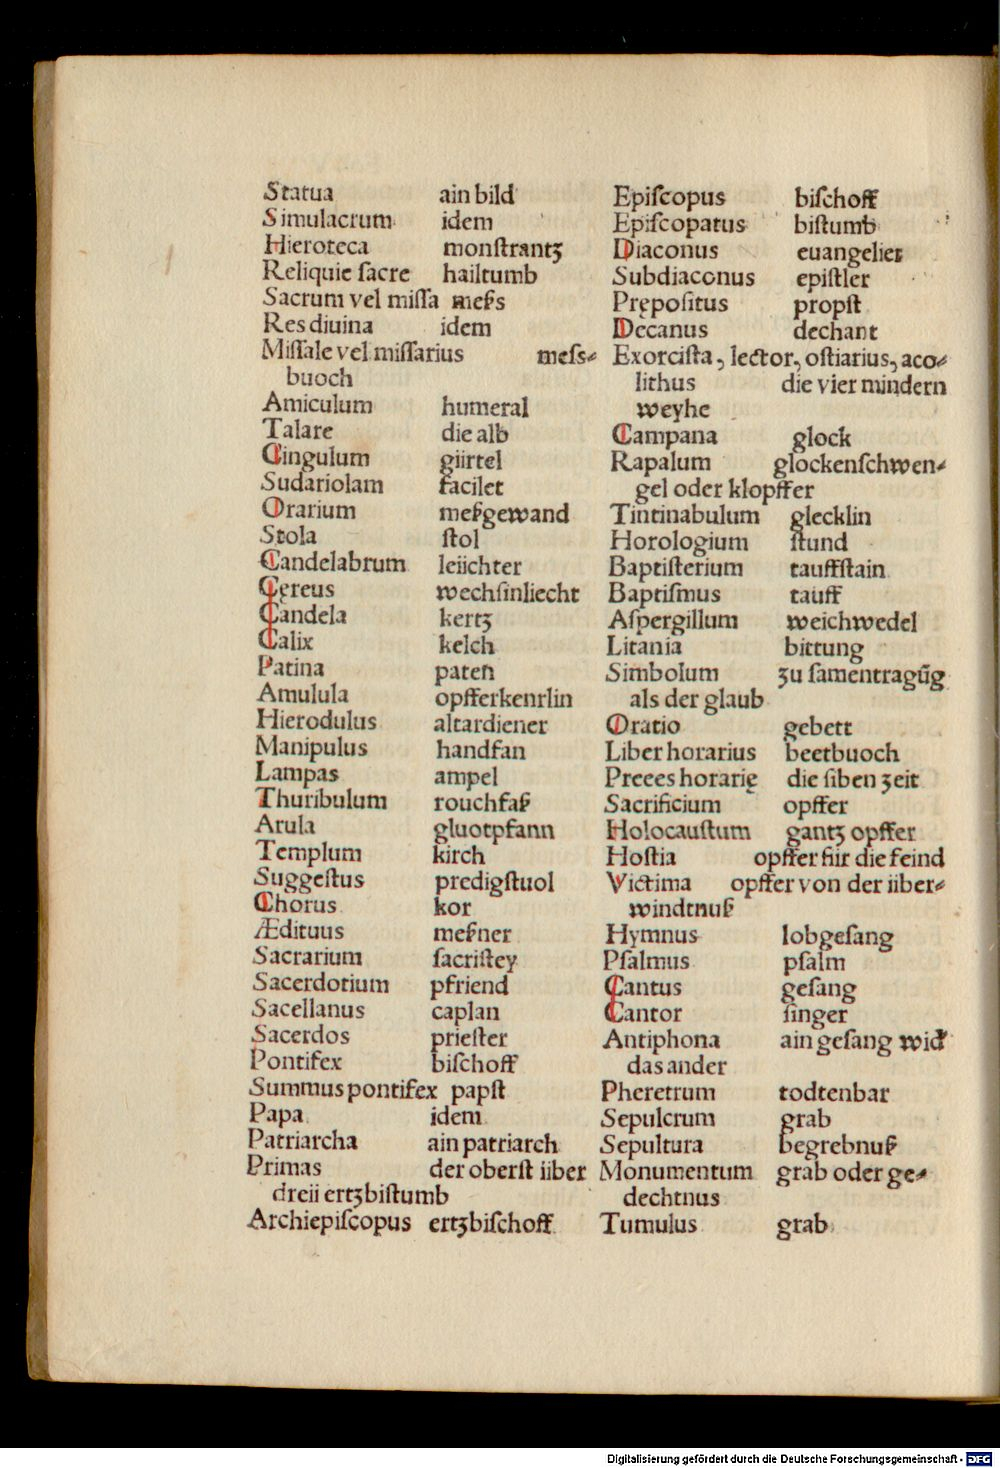 Statua ain bild
Simulacrum idem
Hieroteca monſtrantʒ
Reliquie ſacre hailtumb
Sacrum vel miſſa meſs
Res diuina idem
Miſſale vel miſſarius meſs⸗
buoch
Amiculum humeral
Talare die alb
Cingulum giirtel
Sudariolam facilet
Orarium meßgewand
Stola ſtol
Candelabrum leiichter
Cęreus wechſinliecht
Candela kertʒ
Calix kelch
Patina pateñ
Amulula opfferkenrlin
Hierodulus altardiener
Manipulus handfan
Lampas ampel
Thuribulum rouchfaß
Arula gluotpfann
Templum kirch
Suggeſtus predigſtuol
Chorus kor
Ædituus meßner
Sacrarium ſacriſtey
Sacerdotium pfriend
Sacellanus caplan
Sacerdos prieſter
Pontifex biſchoff
Summus pontifex papſt
Papa idem
Patriarcha ain patriarch
Primas der oberſt iiber
dreii ertʒbiſtumb
Archiepiſcopus ertʒbiſchoff
Epiſcopus biſchoff
Epiſcopatus biſtumb
Diaconus euangelier
Subdiaconus epiſtler
Prępoſitus propſt
Decanus dechant
Exorciſta, lector, oſtiarius, aco⸗
lithus die vier mindern
weyhe
Campana glock
Rapalum glockenſchwen⸗
gel oder klopffer
Tintinabulum glecklin
Horologium ſtund
Baptiſterium tauffſtain
Baptiſmus tauff
Aſpergillum weichwedel
Litania bittung
Simbolum ʒu ſamentragūg
als der glaub
Oratio gebett
Liber horarius beetbuoch
Preces horarię die ſiben ʒeit
Sacrificium opffer
Holocauſtum gantʒ opffer
Hoſtia opffer fiir die feind
Victima opffer von der iiber⸗
windtnuß
Hymnus lobgeſang
Pſalmus pſalm
Cantus geſang
Cantor ſinger
Antiphona ain geſang wid̕
das ander
Pheretrum todtenbar
Sepulcrum grab
Sepultura begrebnuß
Monumentum grab oder ge⸗
dechtnus
Tumulus grab
Digitalisierung gefördert durch die Deutsche Forschungsgemeinschaft - DFG